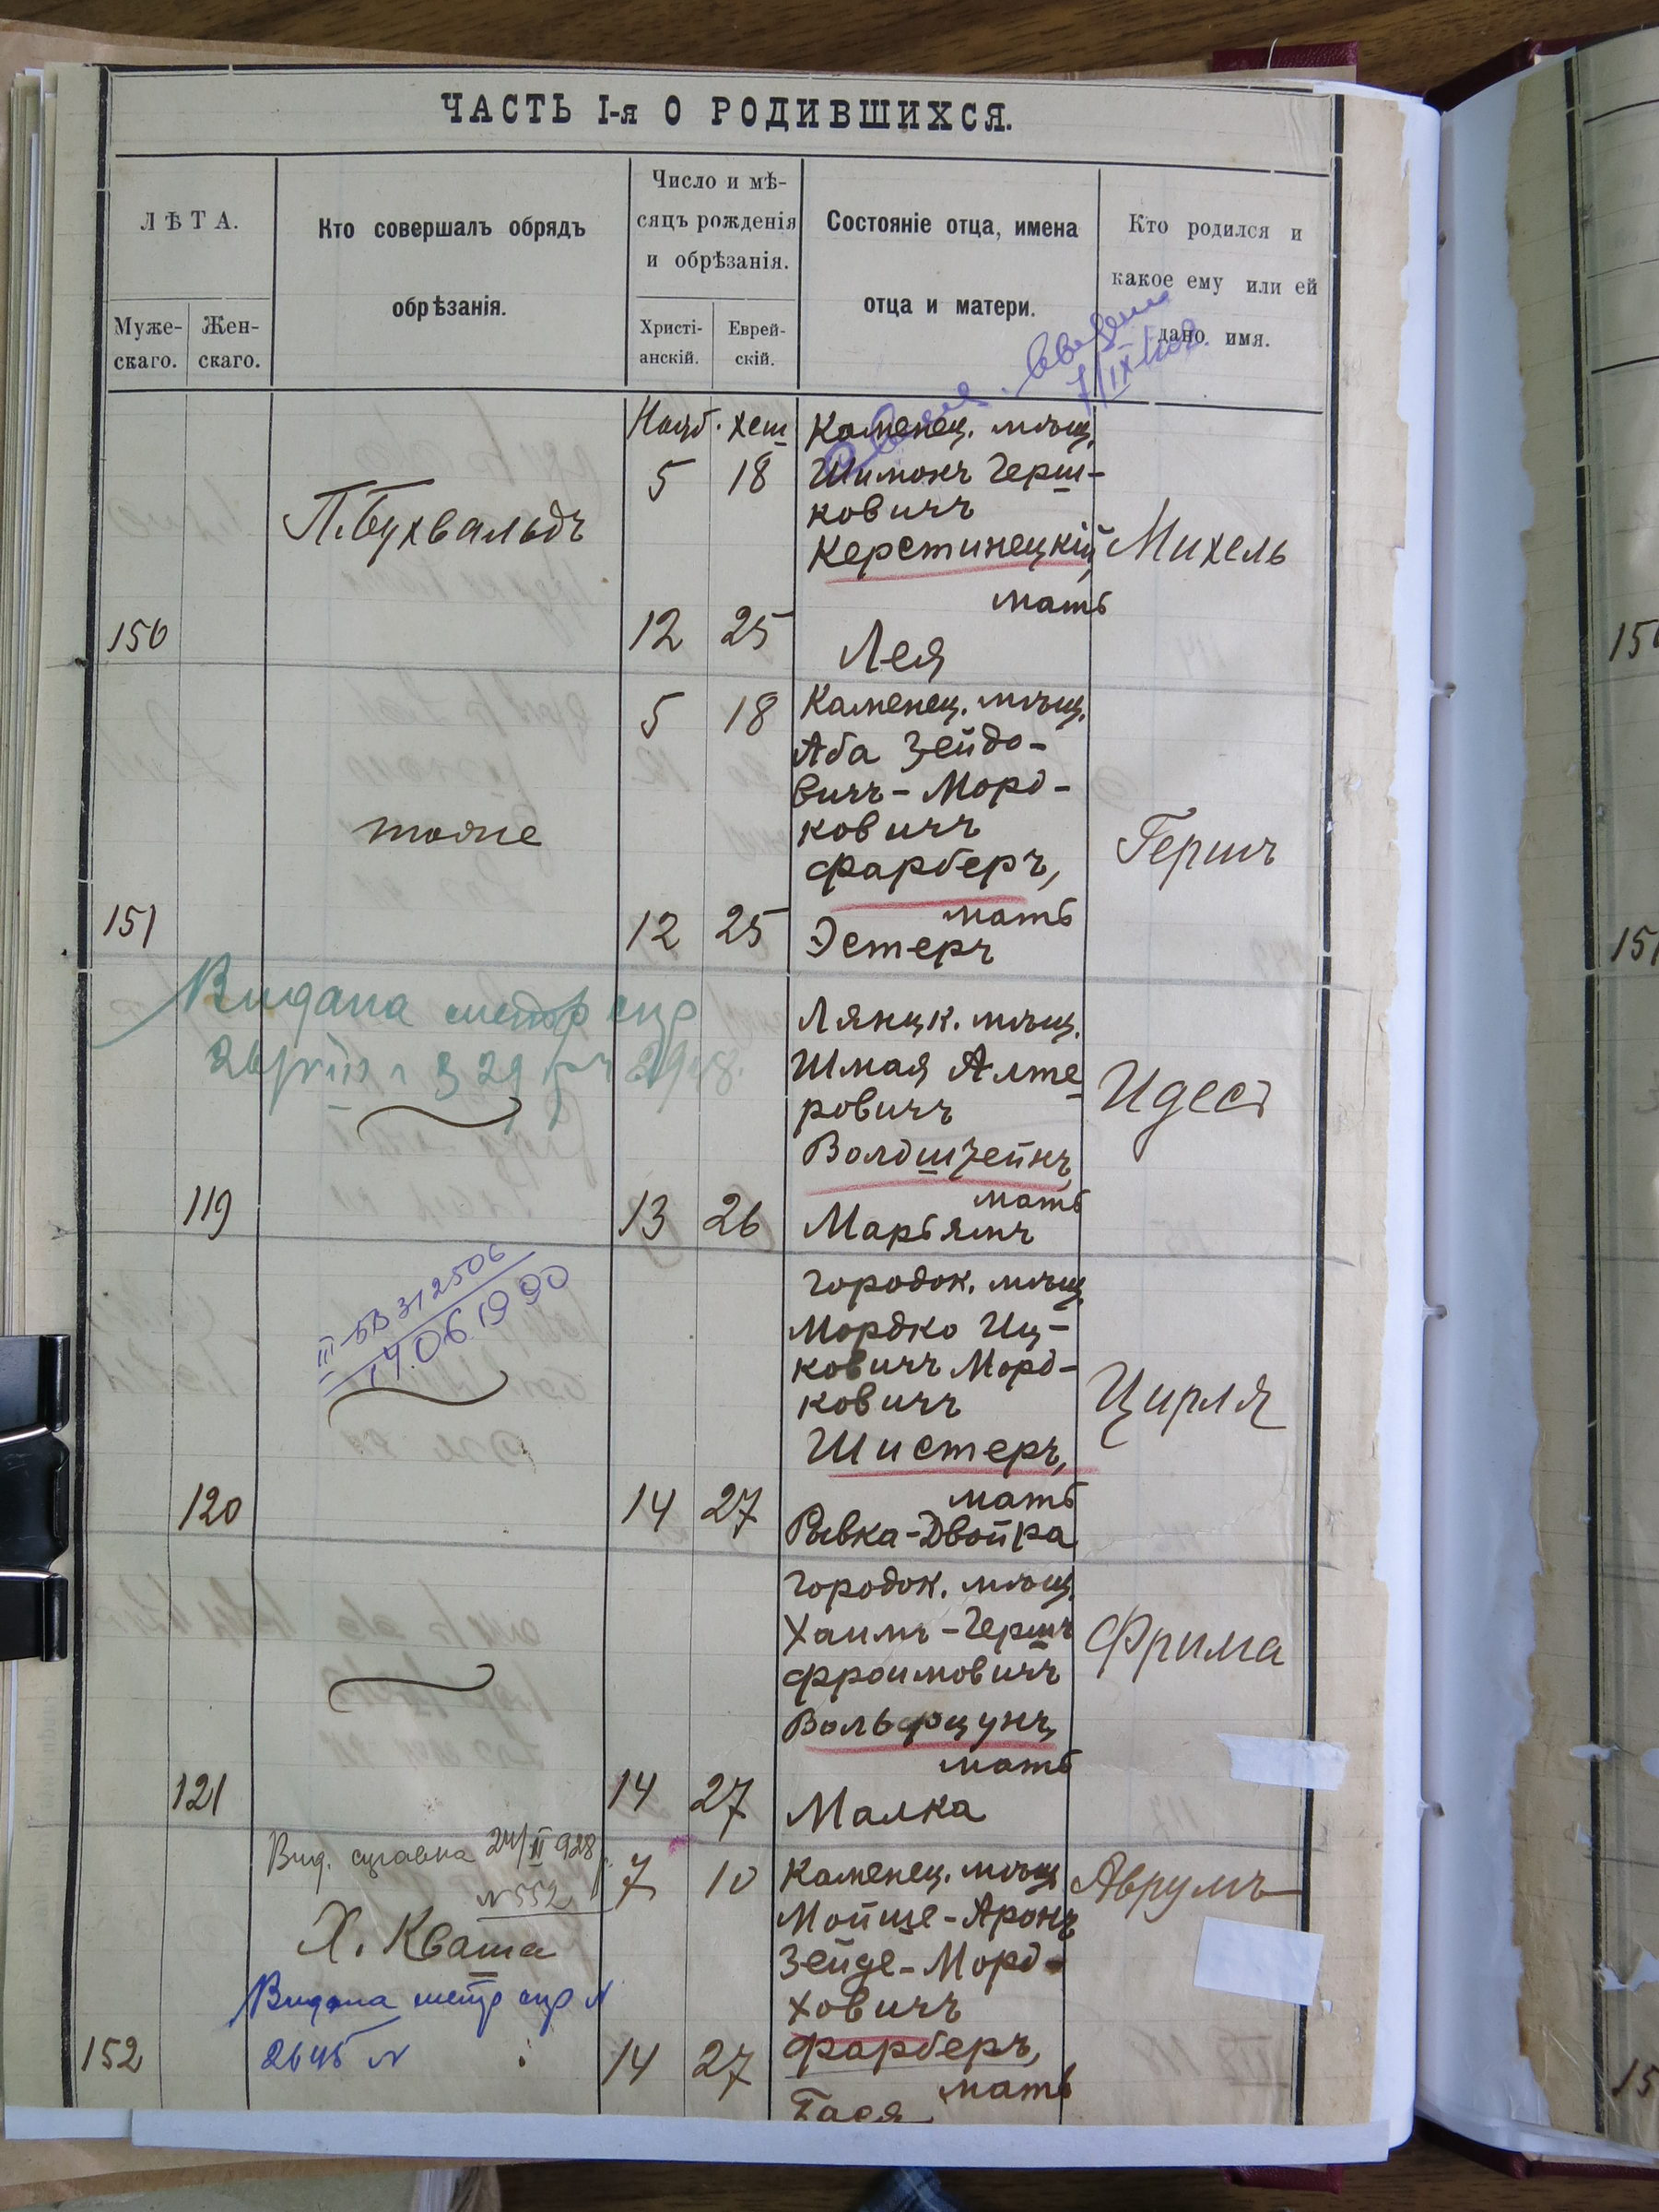 ЧАСТЬ I-я О РОДИВШИХСЯ.
ЛѢТА.
Муже-
скаго.
Жен-
скаго.
Кто совершалъ обрядъ
обрѣзанія.
Число и мѣ-
сяцъ рожденія
и обрѣзанія.
Христі-
анскій.
Еврей-
скій.
Состояніе отца, имена
отца и матери.
Кто родился и
какое ему или ей
дано имя.
7/IX
Нояб. хеш
150
П. Бухвальдъ
5 18
12 25
Каменец. мѣщ.
Шимонъ Герш-
ковичъ
Керстинецкій,
мать
Лея
Михель
151
тоже
5 18
12 25
Каменец. мѣщ.
Аба Зейдо-
вичъ-Морд-
ковичъ
Фарберъ,
мать
Эстеръ
Гершъ
Видана метр
119
13 26
Лянцк. мѣщ.
Шмая Алте
ровичъ
Волдштейнъ,
мать
Марьямъ
Идес
III-БВ 312506
14.06 1990
120
14 27
Городок. мѣщ.
Мордко Иц-
ковичъ Морд-
ковичъ
Шистеръ,
мать
Рывка-Двойра
Цирля
121
14 27
Городок. мѣщ.
Хаимъ-Гершъ
Фроимовичъ
Вольфцунъ,
мать
Малка
Фрима
Вид. справка 24/II 928
N 552
Х. Кваша
Видана метр спр N
2645
152
7 10
14 27
Каменец. мѣщ
Мойше-Аронъ
Зейде-Морд-
ховичъ
Фарберъ,
мать
Бася
Аврумъ
151
15